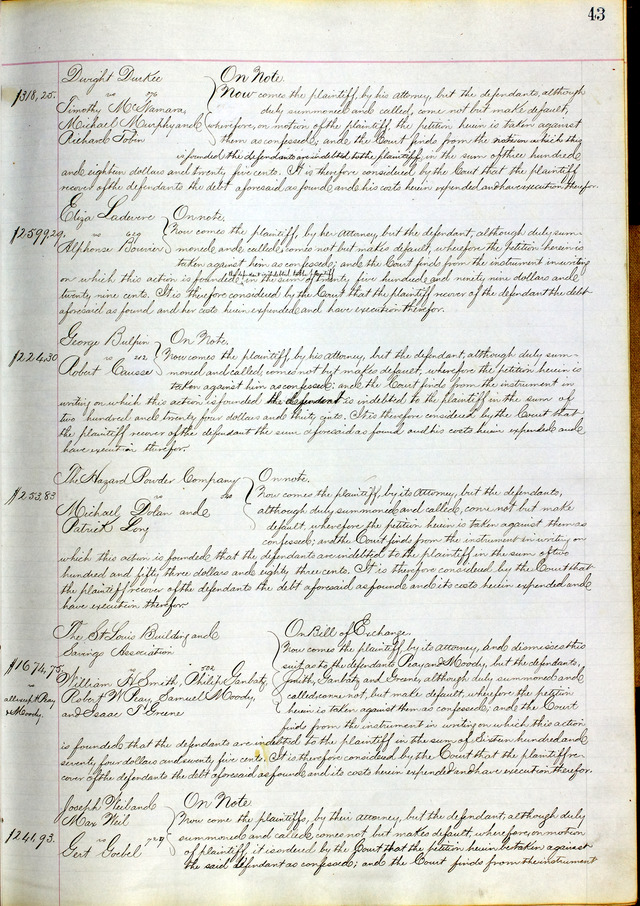 43
Dwight Durkee
$318,25.
vs 576
Timothy McNamara,
Michael Murphy and
Richard Tobin
On Note.
Now comes the plaintiff, by his attorney, but the defendants, although
duly summoned and called, come not but make default,
wherefore, on motion of the plaintiff, the petition herein is taken against
them as confessed; and the Court finds from the note on which this
is founded the defendants are indebted to the plaintiff, in the sum of three hundred
and eighteen dollars and twenty five cents. It is therefore considered by the Court that the plaintiff
recover of the defendants the debt aforesaid as found and his costs herein expended and have execution therefor.
Eliza Ladevere
$2599,29.
vs 619
Alphonse Bouvier
On note.
Now comes the plaintiff, by her Attorney, but the defendant, although duly sum-
moned and called, comes not but makes default, wherefore the Petition herein is
taken against him as confessed; and the Court finds from the instrument in writing
on which this action is founded, in the sum of twenty five hundred and ninety nine dollars and
twenty nine cents. It is therefore considered by the Court that the plaintiff recover of the defendant the debt
aforesaid as found and her costs herein expended and have execution therefor.
George Bulpin
$224,30
vs 212
Robert Cuisse
On Note.
Now comes the plaintiff, by his attorney, but the defendant, although duly sum-
moned and called, comes not but makes default, wherefore the petition herein is
taken against him as confessed; and the Court finds from the instrument in
writing on which this action is founded the defendant is indebted to the plaintiff in the sum of
two hundred and twenty four dollars and thirty cents. It is therefore considered by the Court that
the plaintiff recover of the defendant the sum aforesaid as found and his costs herein expended and
have execution therefor.
The Hazard Powder Company
$253,83
vs
Michael Dolan and
Patrick Long
On note.
Now comes the plaintiff, by its Attorney, but the defendants,
although duly summoned and called, come not but make
default, wherefore the petition herein is taken against them as
confessed; and the Court finds from the instrument in writing on
which this action is founded, that the defendants are indebted to the plaintiff in the sum of two
hundred and fifty three dollars and eighty three cents. It is therefore considered by the Court that
the plaintiff recover of the defendants the debt aforesaid as found and its costs herein expended and
have execution therefor.
The St Louis Building and
Savings Association
$1674,75
vs 502
William H Smith, Philip Ganbatz
Robert W Peay, Samuel Moody,
and Isaac T Greene
all except Peay
& Moody,
On Bill of Exchange.
Now comes the plaintiff, by its attorney, and dismisses this
suit as to the defendants Peay and Moody, but the defendants,
Smith, Ganbatz and Greene, although duly summoned and
called come not, but make default, wherefore the petition
herein is taken against them as confessed; and the Court
finds from the instrument in writing on which this action
is founded that the defendants are indebted to the plaintiff in the sum of Sixteen hundred and
seventy four dollars and seventy five cents. It is therefore considered by the Court that the plaintiff re-
cover of the defendants the debt aforesaid as found and its costs herein expended and have execution therefor.
Joseph Weil and
Max Weil
$1241,93.
vs 729
Gert Goebel
On Note
Now come the plaintiffs, by their attorney, but the defendant, although duly
summoned and called comes not but makes default, wherefore, on motion
of plaintiff, it is ordered by the Court that the petition herein be taken against
the said defendant as confessed; and the Court finds from the instrument